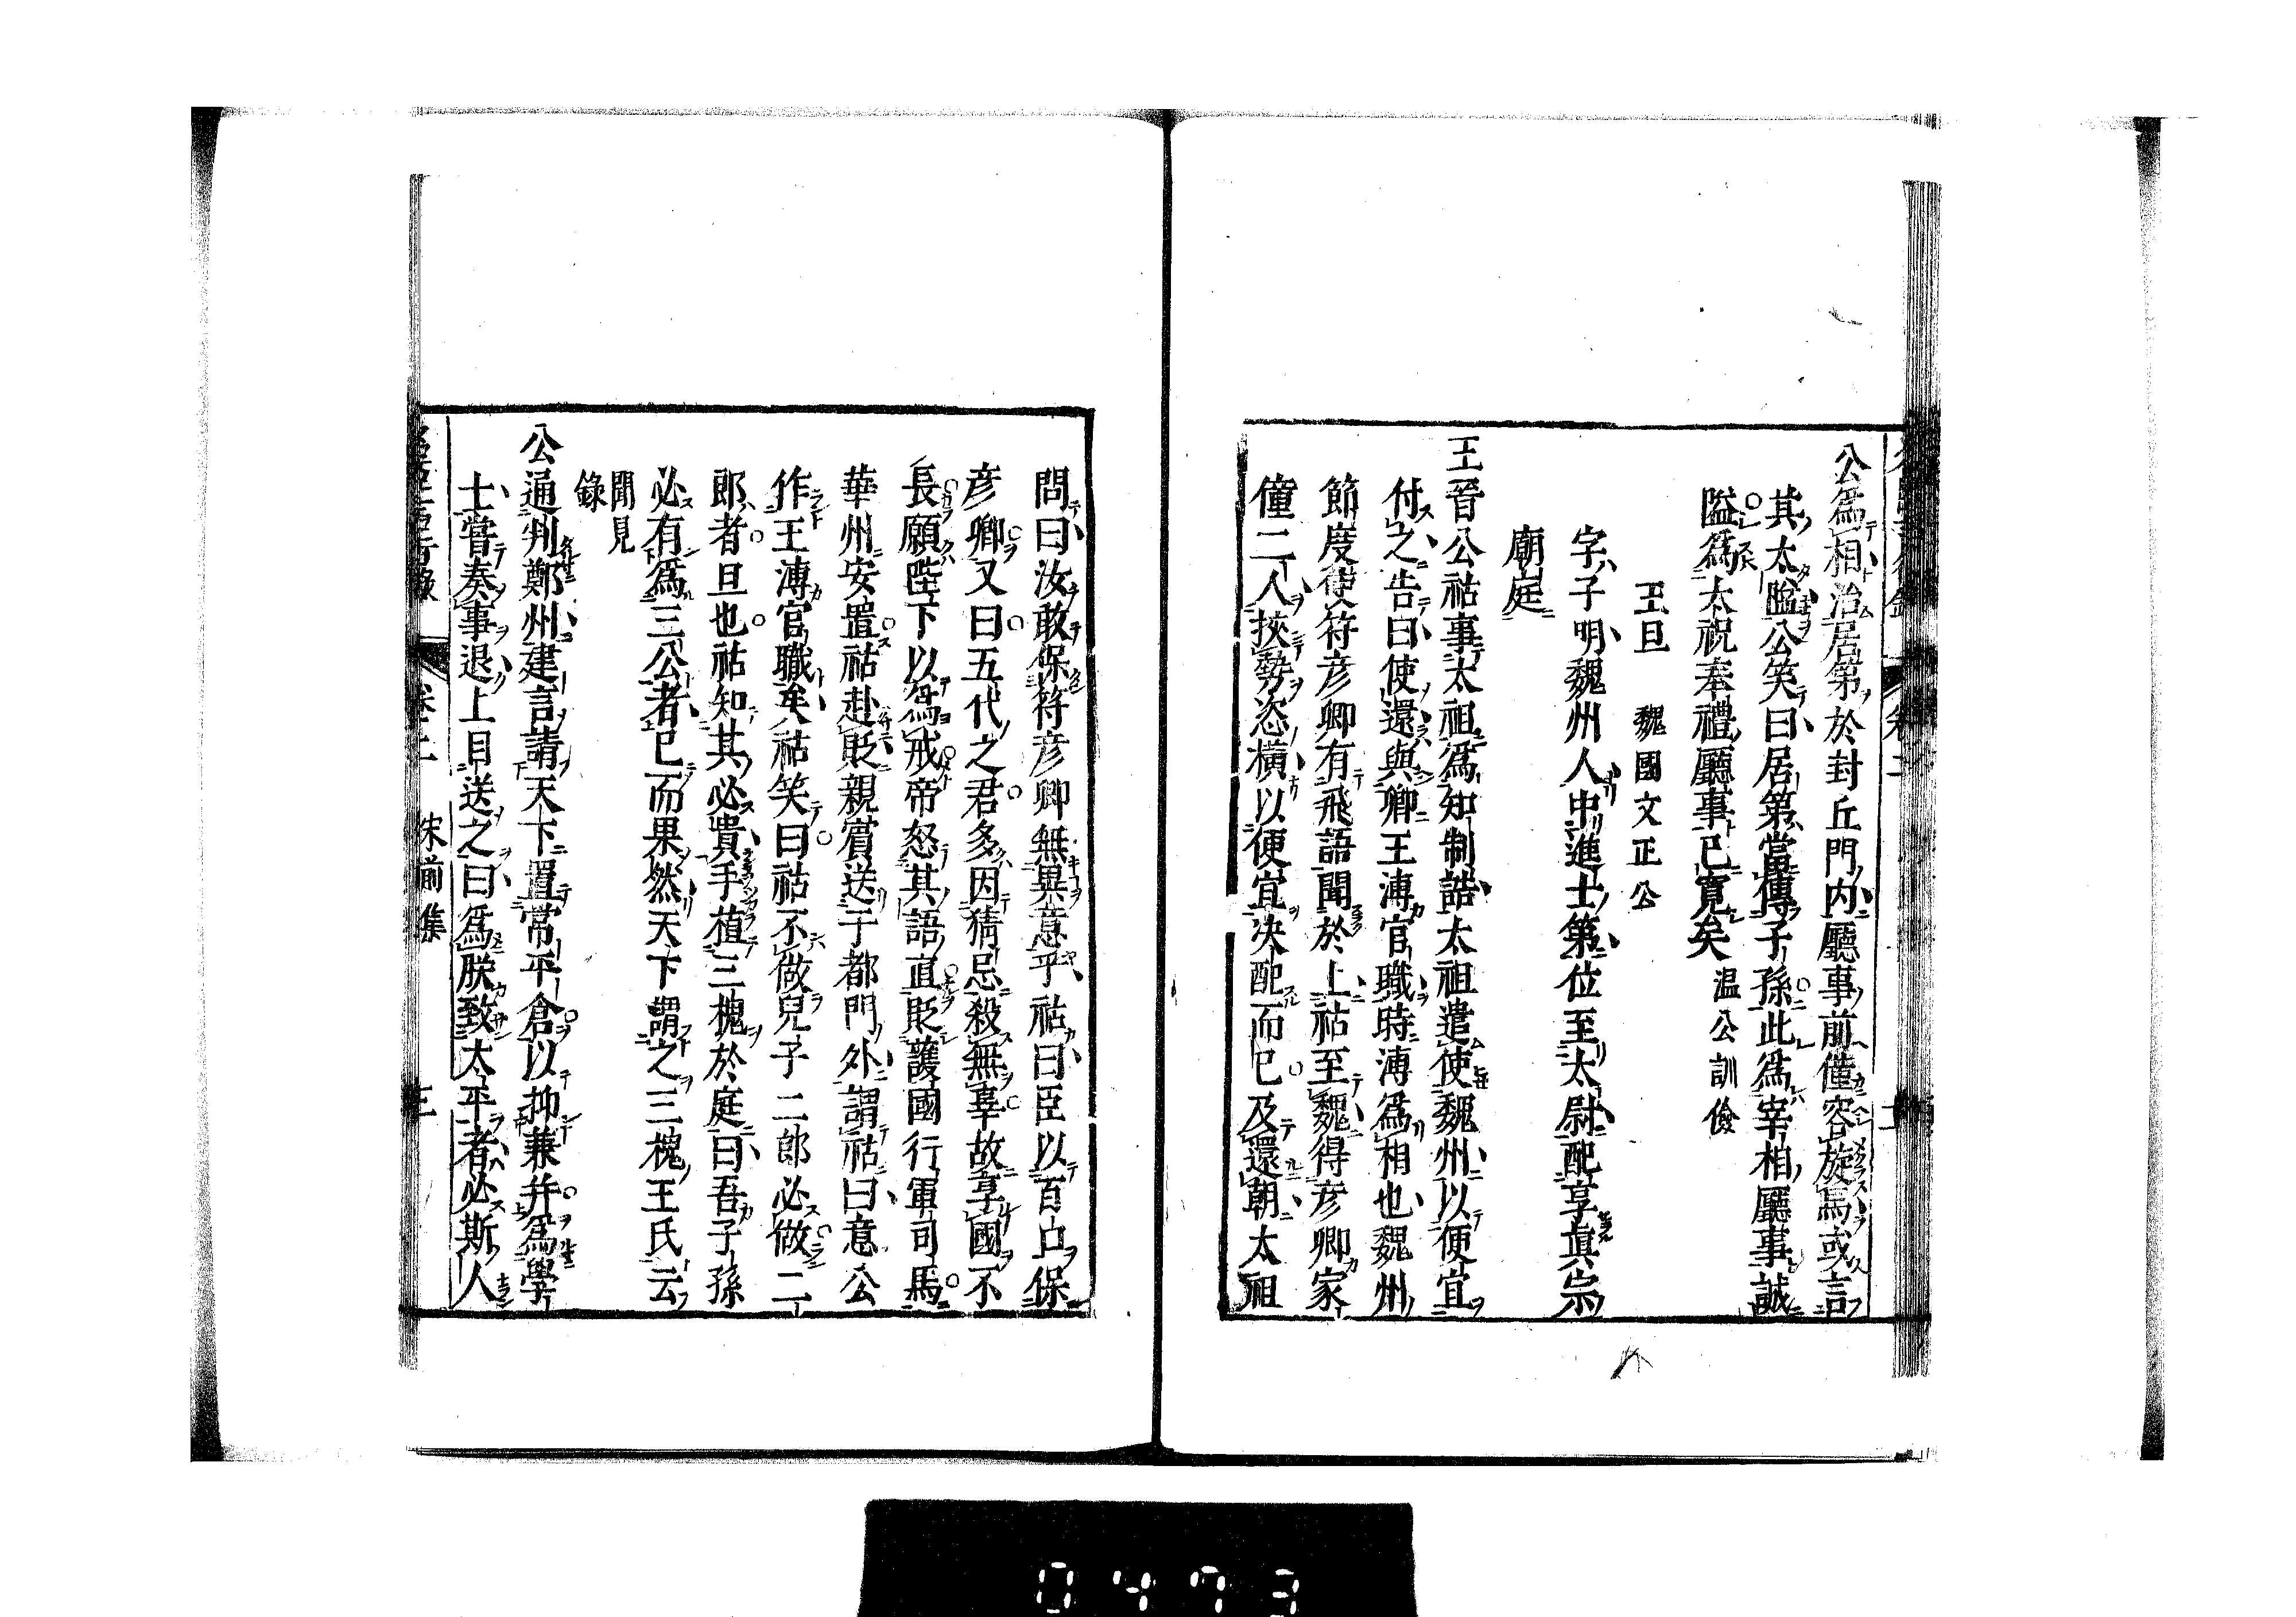 公爲相治居第於封丘門内廳事前僅容旋馬或言
其太隘公笑曰居第當傳子孫此爲宰相廳事誠
隘爲太祝奉禮廳事已寛矣 温公訓儉
王旦 魏國文正公
字子明魏州人中進士第位至太尉配享眞宗
廟庭
王晉公祜事太祖爲知制誥太祖遣使魏州以便宜
付之告曰使還與卿王溥官職時溥爲相也魏州
節度使符彦卿有飛語聞於上祜至魏得彦卿家
僮二人挾勢恣横以便宜决配而已及還朝太祖
問曰汝敢保符彦卿無異意乎祜曰臣以百口保
彦卿又曰五代之君多因猜忌殺無辜故享國不
長願陛下以爲戒帝怒其語直貶護國行軍司馬
華州安置祜赴貶親賓送于都門外謂祜曰意公
作王溥官職矣祜笑曰祜不做兒子二郎必做二
郎者旦也祜知其必貴手植三槐於庭曰吾子孫
必有爲三公者已而果然天下謂之三槐王氏云
聞見
錄
公通判鄭州建言請天下置常平倉以抑兼并爲學
士嘗奏事退上目送之曰爲朕致太平者必斯人
卷二 宋前集 三
0473